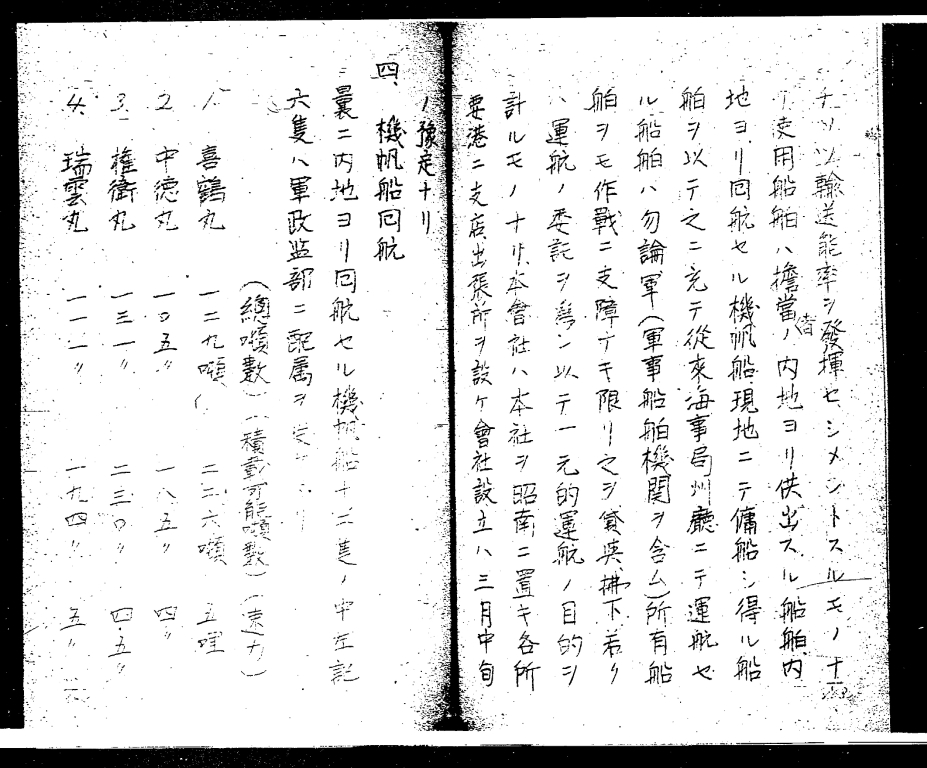 輸送能率ヲ發揮セシメントスルモノナ
使用船舶ハ擔當者ノ内地ヨリ供出スル船舶内
地ヨリ囘航セル機帆船現地ニテ傭船シ得ル船
舶ヲ以テ之ニ充テ從來海事局州廳ニテ運航セ
ル船舶ハ勿論軍(軍事船舶機関ヲ含ム)所有船
舶ヲモ作戰ニ支障ナキ限リ之ヲ貸與拂下若ク
ハ運航ノ委託ヲ爲シ以テ一元的運航ノ目的ヲ
計ルモノナリ、本會社ハ本社ヲ昭南ニ置キ各所
要港ニ支店出張所ヲ設ケ會社設立ハ三月中旬
ノ豫定ナリ
四、機帆船囘航
曩ニ内地ヨリ囘航セル機帆船十二隻ノ中左記
六隻ハ軍政監部ニ配属ヲ
(總噸數)(積載可能噸數)(速力)
1. 喜鶴丸 一二九噸 二二六噸 五浬
2. 中徳丸 一〇五〃 一八五〃 四〃
3. 権衛丸 一三一〃 二三〇〃 四.五〃
4. 瑞雲丸 一一一〃 一九四〃 五〃